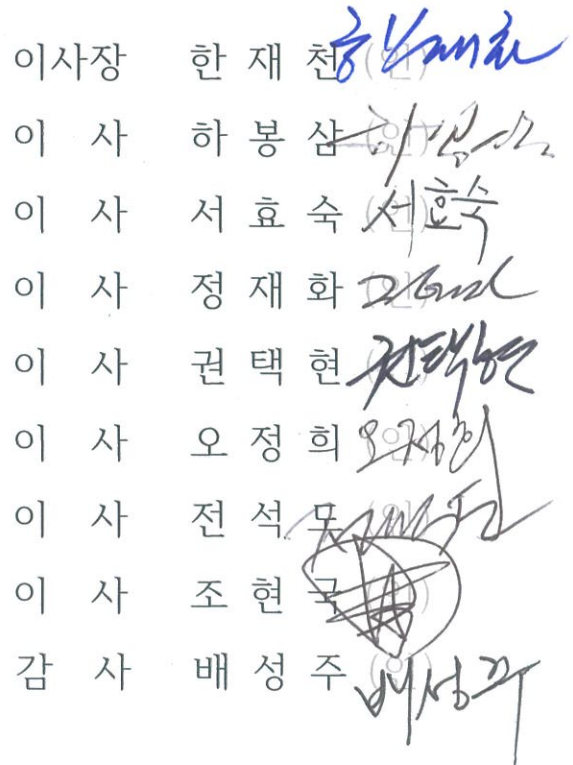 이사장 한 재 천 (인) 한재천
이 사 하 봉 삼 (인) 하봉삼
이 사 서 효 숙 (인) 서효숙
이 사 정 재 화 (인)
이 사 권 택 현 (인) 권택현
이 사 오 정 희 (인) 오정희
이 사 전 석 도 (인)
이 사 조 현 국 (인)
감 사 배 성 주 (인) 배성주